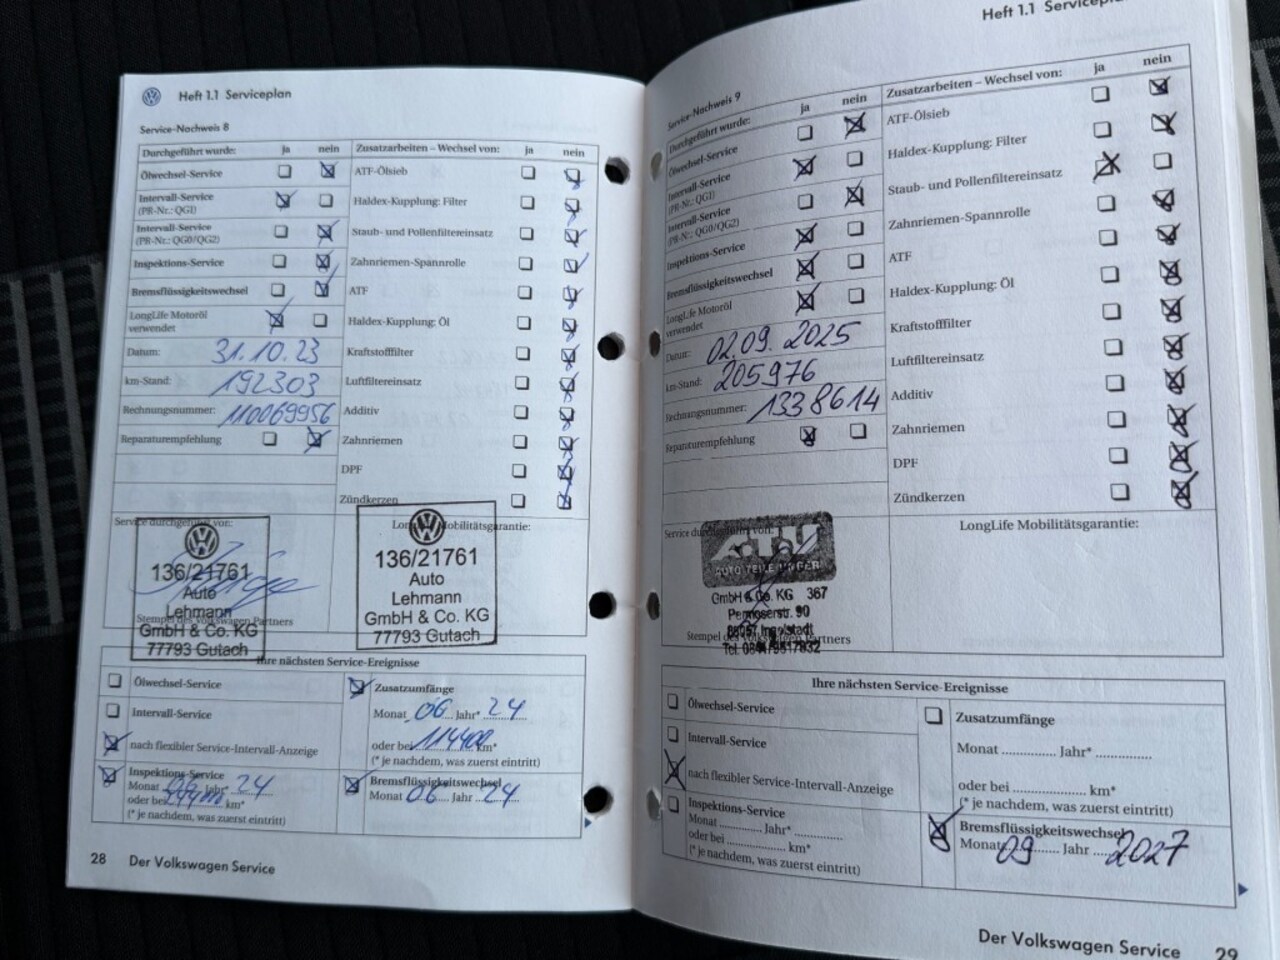 Heft 1.1 Serviceplan
Service-Nachweis 8
Durchgeführt wurde: ja nein
Zusatzarbeiten – Wechsel von: ja nein
Ölwechsel-Service
ATF-Ölsieb
Intervall-Service
(PR-Nr.: QG1)
Haldex-Kupplung: Filter
Intervall-Service
(PR-Nr.: QG0/QG2)
Staub- und Pollenfiltereinsatz
Inspektions-Service
Zahnriemen-Spannrolle
Bremsflüssigkeitswechsel
ATF
LongLife Motoröl
verwendet
Haldex-Kupplung: Öl
Datum: 31.10.23
Kraftstofffilter
km-Stand: 192303
Luftfiltereinsatz
Rechnungsnummer: 110069956
Additiv
Reparaturempfehlung
Zahnriemen
DPF
Zündkerzen
Service durchgeführt von:
LongLife Mobilitätsgarantie:
136/21761
Auto
Lehmann
GmbH & Co. KG
77793 Gutach
136/21761
Auto
Lehmann
GmbH & Co. KG
77793 Gutach
Stempel des Volkswagen Partners
Ihre nächsten Service-Ereignisse
Ölwechsel-Service
Zusatzumfänge
Intervall-Service
Monat 06 Jahr* 24
nach flexibler Service-Intervall-Anzeige
oder bei 114400 km*
(* je nachdem, was zuerst eintritt)
Inspektions-Service
Monat 06 Jahr* 24
oder bei km*
(* je nachdem, was zuerst eintritt)
Bremsflüssigkeitswechsel
Monat 06 Jahr 24
28 Der Volkswagen Service
Heft 1.1 Serviceplan
Service-Nachweis 9
Durchgeführt wurde: ja nein
Zusatzarbeiten – Wechsel von: ja nein
Ölwechsel-Service
ATF-Ölsieb
Intervall-Service
(PR-Nr.: QG1)
Haldex-Kupplung: Filter
Intervall-Service
(PR-Nr.: QG0/QG2)
Staub- und Pollenfiltereinsatz
Inspektions-Service
Zahnriemen-Spannrolle
Bremsflüssigkeitswechsel
ATF
LongLife Motoröl
verwendet
Haldex-Kupplung: Öl
Datum: 02.09.2025
Kraftstofffilter
km-Stand: 205976
Luftfiltereinsatz
Rechnungsnummer: 1338614
Additiv
Reparaturempfehlung
Zahnriemen
DPF
Zündkerzen
Service durchgeführt von:
LongLife Mobilitätsgarantie:
A.T.U
AUTO TEILE UNGER
GmbH & Co. KG 367
Ingolstadt
Stempel des Volkswagen Partners
Ihre nächsten Service-Ereignisse
Ölwechsel-Service
Zusatzumfänge
Intervall-Service
Monat ............... Jahr* ...............
nach flexibler Service-Intervall-Anzeige
oder bei .................... km*
(* je nachdem, was zuerst eintritt)
Inspektions-Service
Monat ............ Jahr* .............
oder bei ................. km*
(* je nachdem, was zuerst eintritt)
Bremsflüssigkeitswechsel
Monat 09 Jahr 2027
Der Volkswagen Service 29